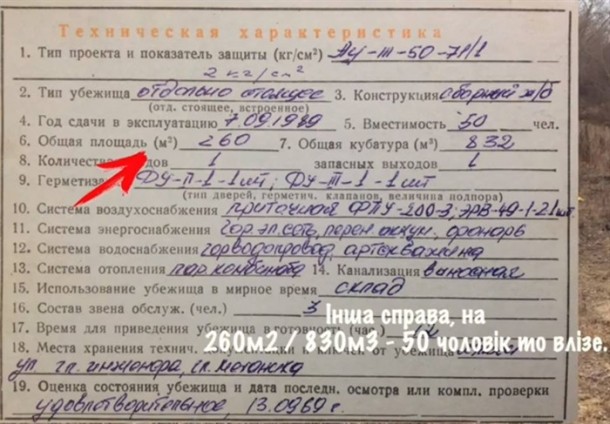 Техническая характеристика
1. Тип проекта и показатель защиты (кг/см²) АУ-III-50-71/1
2 кг/см²
2. Тип убежища отдельно стоящее 3. Конструкция сборный ж/б
(отд. стоящее, встроенное)
4. Год сдачи в эксплуатацию 7.09.1989 5. Вместимость 50 чел.
6. Общая площадь (м²) 260 7. Общая кубатура (м³) 832
8. Количество 1 запасных выходов 1
9. ДУ-II-1-1шт; ДУ-III-1-1шт
(тип дверей, герметич. клапанов, величина подпора)
10. Система воздухоснабжения приточная ФПУ-200-3; ЭРВ-49-1-2шт
11. Система энергоснабжения гор.эл.сеть, перен. аккум. фонарь
12. Система водоснабжения горводопровод, артскважина
13. Система отопления пар. комбината 14. Канализация выносная
15. Использование убежища в мирное время склад
16. Состав звена обслуж. (чел.) 3
Інша справа, на
17. Время для приведения убежища в готовность (час.)
260м2 / 830м3 - 50 чоловік то влізе.
18. Места хранения технич. и ключей от убежища
ул. гл. инженера,
19. Оценка состояния убежища и дата последн. осмотра или компл. проверки
удовлетворительное, 13.0989г.